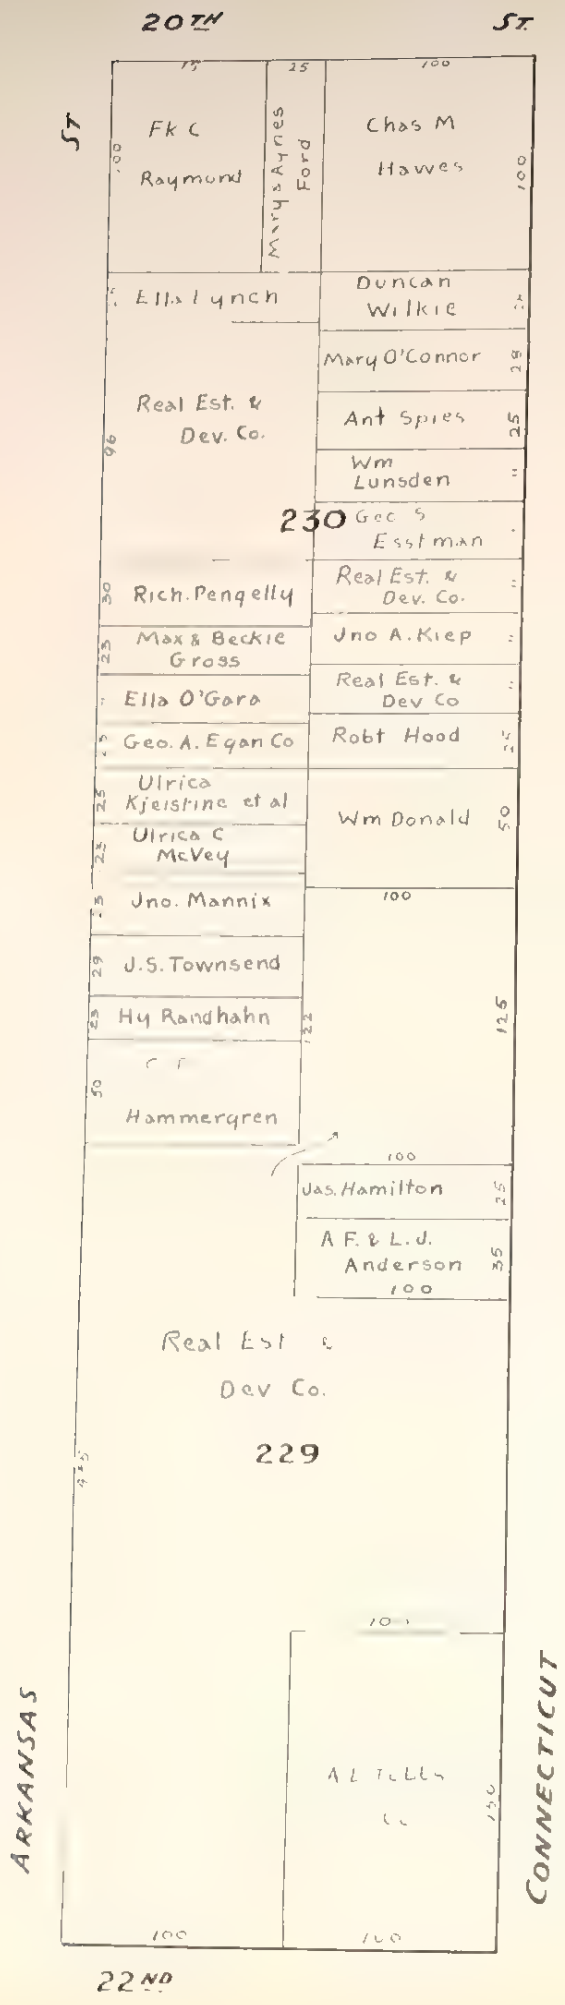 20TH ST.
ST
25
100
Fk C
Raymond
100
Mary & Agnes
Ford
Chas M
Hawes
100
Ella Lynch
Duncan
Wilkie
Mary O'Connor
28
Real Est. &
Dev. Co.
96
Ant Spies
25
Wm
Lunsden
"
230
Geo S
Esstman
Real Est. &
Dev. Co.
"
30
Rich. Pengelly
Jno A. Kiep
"
25
Max & Beckie
Gross
Real Est. &
Dev Co
"
"
Ella O'Gara
Geo. A. Egan Co
Robt Hood
25
25
Ulrica
Kjeistine et al
Wm Donald
50
25
Ulrica C
McVey
100
Jno. Mannix
29
J.S. Townsend
125
25
Hy Randhahn
122
50
Hammergren
100
Jas. Hamilton
25
A F. & L. J.
Anderson
35
100
Real Est &
Dev Co.
229
100
100
22ND
ARKANSAS
CONNECTICUT